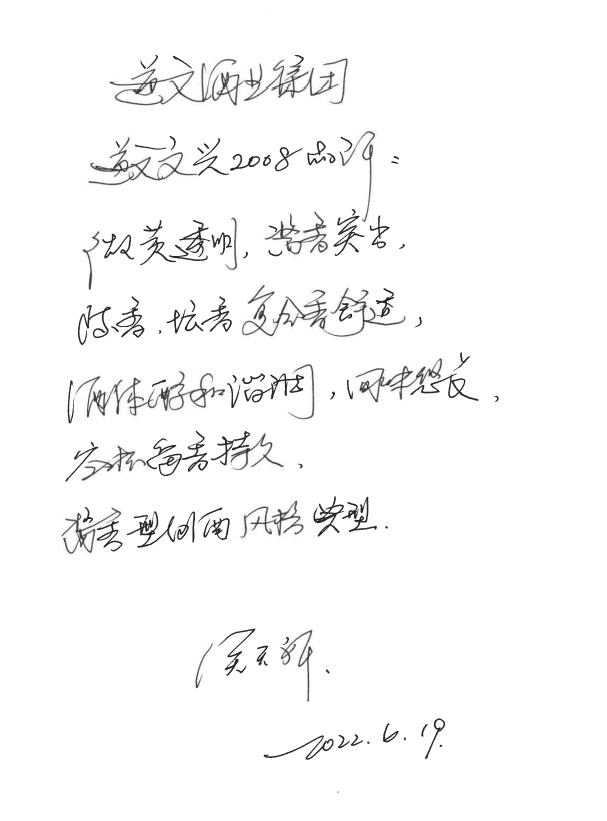 遵文酒业集团
遵文文兴2008品评：
微黄透明，酱香突出，
陈香、坛香复合香舒适，
酒体醇和谐调，回味悠长，
空杯留香持久、
酱香型白酒风格典型.
2022.6.19.